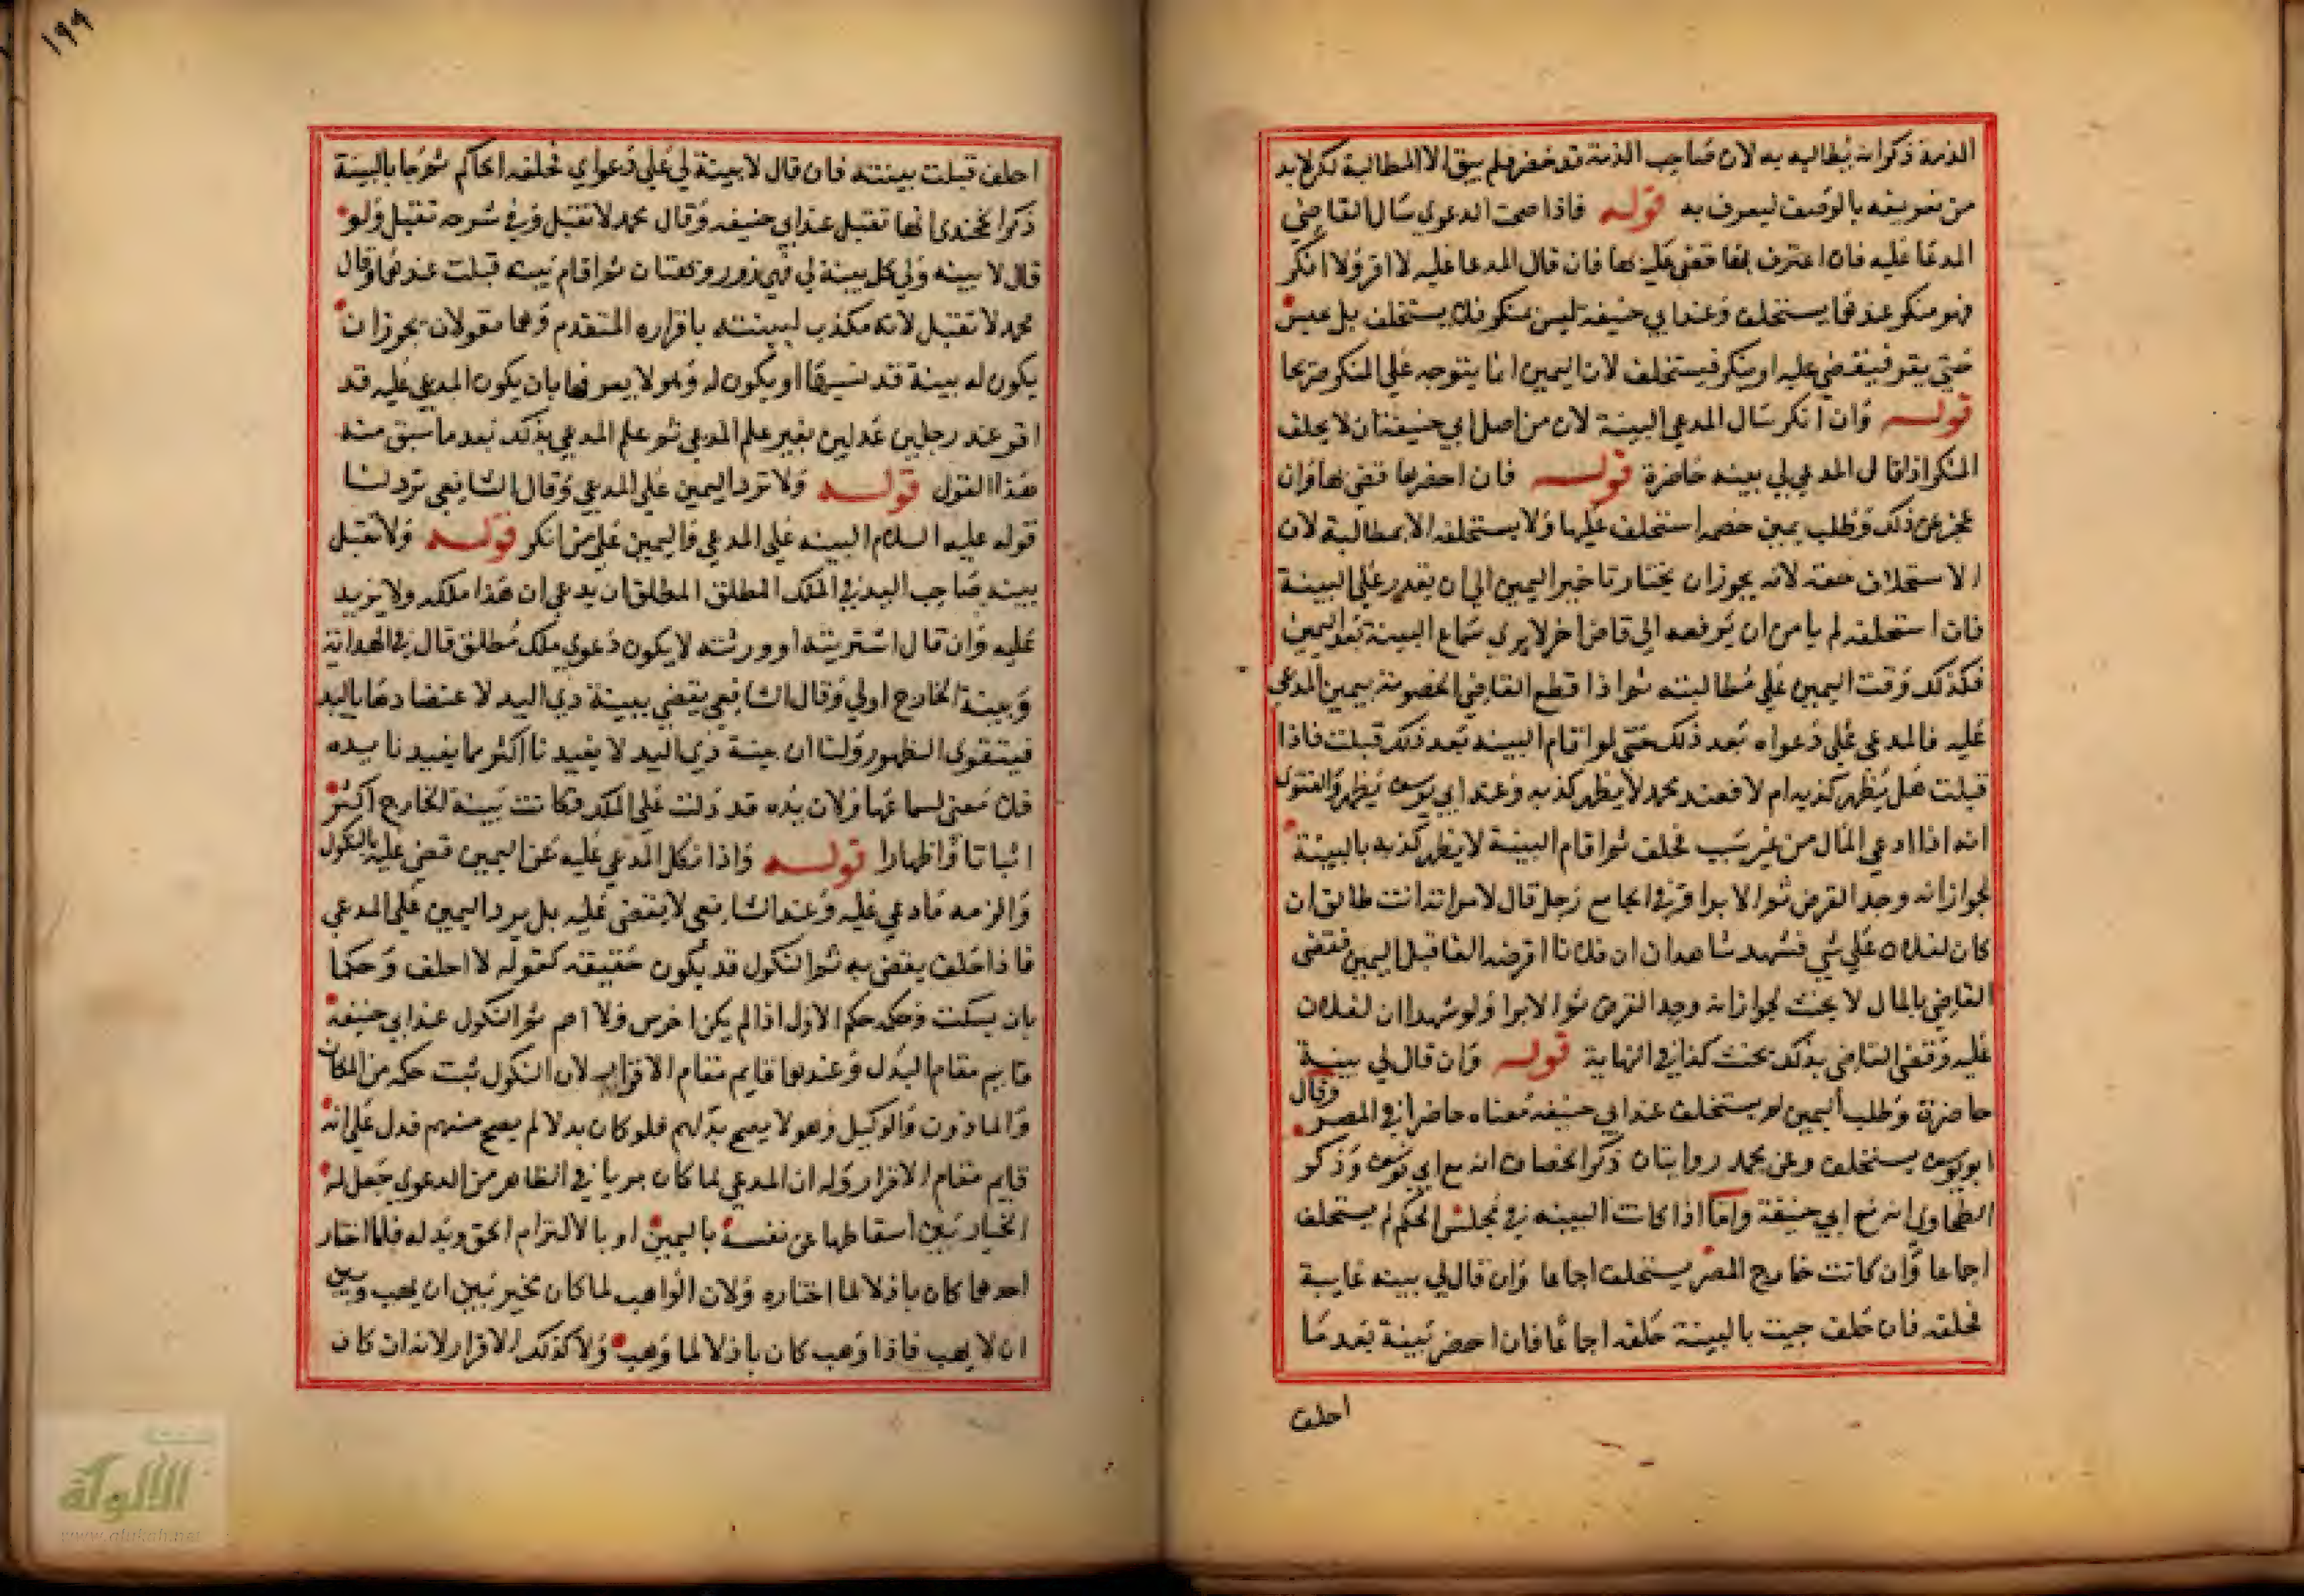 الذمة ذكر انه يطالبه به لان صاحب الذمة قد حضر فلم يبق الا المطالبة لكن لا بد
من تعريفه بالوصف ليعرف به قوله فاذا صحت الدعوى سال القاضي
المدعا عليه فان اعترف بها قضى عليه بها فان قال المدعا عليه لا اقر ولا انكر
فهو منكر عندهما يستحلف وعند ابي حنيفة ليس بمنكر فلا يستحلف بل يحبس
حتى يقر فيقضي عليه او ينكر فيستحلف لان اليمين انما يتوجه على المنكر صريحا
قوله وان انكر سال المدعي البينة لان من اصل ابي حنيفة ان لا يحلف
المنكر اذا قال المدعي لي بينه حاضرة قوله فان احضرها قضي بها وان
عجز عن ذلك وطلب يمين خصمه استحلف عليها ولا يستحلفه الا بمطالبة لان
الاستحلاف حقه لانه يجوز ان يختار تاخير اليمين الى ان يقدر على البينة
فان استحلفه لم يامن ان يرفعه الى قاض اخر لا يرى سماع البينة بعد اليمين
فكذلك وقت اليمين على مطالبته ثم اذا قطع القاضي الخصومة بيمين المدعى
عليه فالمدعي على دعواه بعد ذلك حتى لو اقام البينه بعد ذلك قبلت فاذا
قبلت هل يظهر كذبه ام لا فعند محمد لا يظهر كذبه وعند ابي يوسف يظهر والفتوى
انه اذا ادعى المال من غير سبب فحلف ثم اقام البينة لا يظهر كذبه بالبينة
لجواز انه وجد القرض ثم الابرا وفي الجامع رجل قال لامراته انت طالق ان
كان لفلان علي شي فشهد شاهدان ان فلانا اقرضه الفا قبل اليمين فقضى
القاضي بالمال لا يحنث لجواز انه وجد القرض ثم الابرا ولو شهدا ان لفلان
عليه وقضى القاضي بذلك يحنث كذا في النهاية قوله وان قال لي بينة
حاضرة وطلب اليمين لم يستحلف عند ابي حنيفه معناه حاضرا في المصر وقال
ابو يوسف يستحلف وعن محمد روايتان ذكر الخصاف انه مع ابي يوسف وذكر
الطحاوي انه مع ابي حنيفة واما اذا كانت البينه في مجلس الحكم لم يستحلف
اجماعا وان كانت خارج المصر يستحلف اجماعا وان قال لي بينه غايبة
فحلفه فان حلف جيت بالبينة حلفه اجماعا فان احضر بينة بعد ما
احلف
١٩٩
احلف قبلت بينته فان قال لا بينة لي على دعواي فحلفه الحاكم ثم جا بالبينة
ذكر الخجندي انها تقبل عند ابي حنيفه وقال محمد لا تقبل وفي شرحه تقبل ولو
قال لا بينه ولي كل بينة لي فهي زور وبهتان ثم اقام بينه قبلت عندهما وقال
محمد لا تقبل لانه مكذب لبينته باقراره المتقدم وهما يقولان يجوز ان
يكون له بينة قد نسيها او يكون له وهو لا يعرفها بان يكون المدعى عليه قد
اقر عند رجلين عدلين بغير علم المدعي ثم علم المدعي بذلك بعد ما سبق منه
هذا القول قوله ولا ترد اليمين على المدعي وقال الشافعي ترد لنا
قوله عليه السلام البينه على المدعي واليمين على من انكر قوله ولا تقبل
بينه صاحب اليد في الملك المطلق المطلق ان يدعي ان هذا ملكه ولا يزيد
عليه وان قال اشتريته او ورثته لا يكون دعوى ملك مطلق قال في الهداية
وبينة الخارج اولى وقال الشافعي يقضي ببينة ذي اليد لاعتضادها باليد
فيتقوى الظهور ولنا ان بينة ذي اليد لا يفيدنا اكثر مما يفيدنا يده
فلا معنى لسماعها ولان يده قد دلت على الملك فكانت بينة الخارج اكثر
اثباتا واظهارا قوله واذا نكل المدعى عليه عن اليمين قضي عليه بالنكول
والزمه ما ادعي عليه وعند الشافعي لا يقضى عليه بل يرد اليمين على المدعي
فاذا حلف يقضى به ثم النكول قد يكون حقيقه كقوله لا احلف وحكما
بان يسكت وحكمه حكم الاول اذا لم يكن اخرس ولا اصم ثم النكول عند ابي حنيفة
قايم مقام البدل وعندهما قايم مقام الاقرار لان النكول ثبت حكمه من المكاتب
والماذون والوكيل وهو لا يصح بذلهم فلو كان بذلا لم يصح منهم فدل على انه
قايم مقام الاقرار وله ان المدعي لما كان مبريا في الظاهر من الدعوى جعل له
الخيار بين اسقاطها عن نفسه باليمين او بالالتزام الحق وبذله فلما اختار
احدهما كان باذلا لما اختاره ولان الواهب لما كان مخير بين ان يهب وبين
ان لا يهب فاذا وهب كان باذلا لما وهب ولا كذلك الاقرار لانه ان كان
الألوكة
www.alukah.net